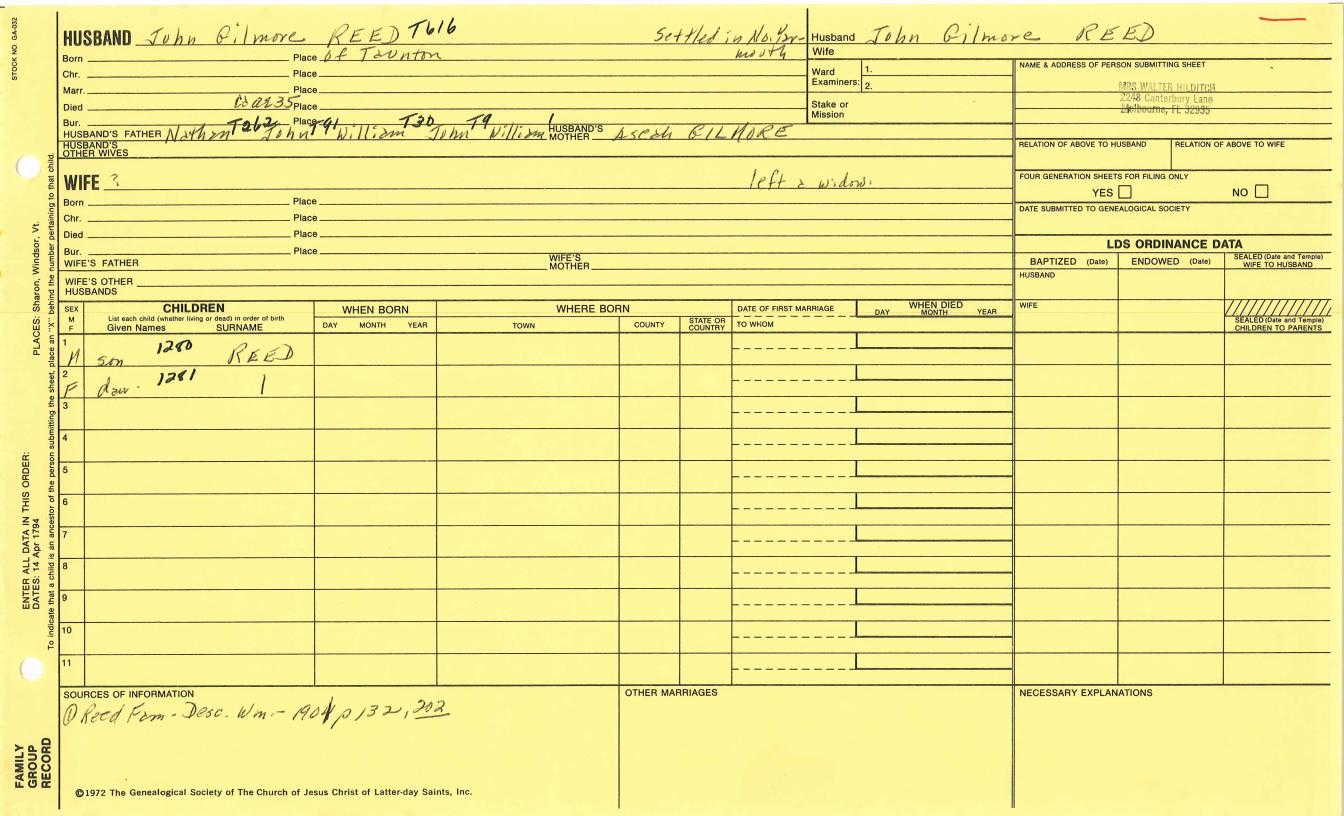 STOCK NO. GA-032
HUSBAND John Gilmore REED T616 Settled in No. Yar-
mouth
Born Place of Taunton
Chr. Place
Marr. Place
Died 1835 Place
Bur. Place
HUSBAND'S FATHER Nathan T262 John T91 William T30 John T9 William 1 HUSBAND'S MOTHER Aseah GILMORE
HUSBAND'S OTHER WIVES
Husband John Gilmore REED
Wife
Ward Examiners: 1.
2.
Stake or Mission
NAME & ADDRESS OF PERSON SUBMITTING SHEET
MRS WALTER HILDITCH
2248 Canterbury Lane
Melbourne, FL 32935
RELATION OF ABOVE TO HUSBAND RELATION OF ABOVE TO WIFE
FOUR GENERATION SHEETS FOR FILING ONLY
YES NO
DATE SUBMITTED TO GENEALOGICAL SOCIETY
WIFE ? left a widow.
Born Place
Chr. Place
Died Place
Bur. Place
WIFE'S FATHER WIFE'S MOTHER
WIFE'S OTHER HUSBANDS
LDS ORDINANCE DATA
BAPTIZED (Date) ENDOWED (Date) SEALED (Date and Temple) WIFE TO HUSBAND
HUSBAND
WIFE
SEALED (Date and Temple) CHILDREN TO PARENTS
SEX M F
CHILDREN
List each child (whether living or dead) in order of birth
Given Names SURNAME
WHEN BORN
DAY MONTH YEAR
WHERE BORN
TOWN COUNTY STATE OR COUNTRY
DATE OF FIRST MARRIAGE
TO WHOM
WHEN DIED
DAY MONTH YEAR
1 M son 1280 REED
2 F dau. 1281 |
3
4
5
6
7
8
9
10
11
SOURCES OF INFORMATION
① Reed Fam - Desc. Wm. - 1901 p 132, 202
OTHER MARRIAGES
NECESSARY EXPLANATIONS
©1972 The Genealogical Society of The Church of Jesus Christ of Latter-day Saints, Inc.
FAMILY GROUP RECORD
ENTER ALL DATA IN THIS ORDER:
DATES: 14 Apr 1794
PLACES: Sharon, Windsor, Vt.
To indicate that a child is an ancestor of the person submitting the sheet, place an "X" behind the number pertaining to that child.